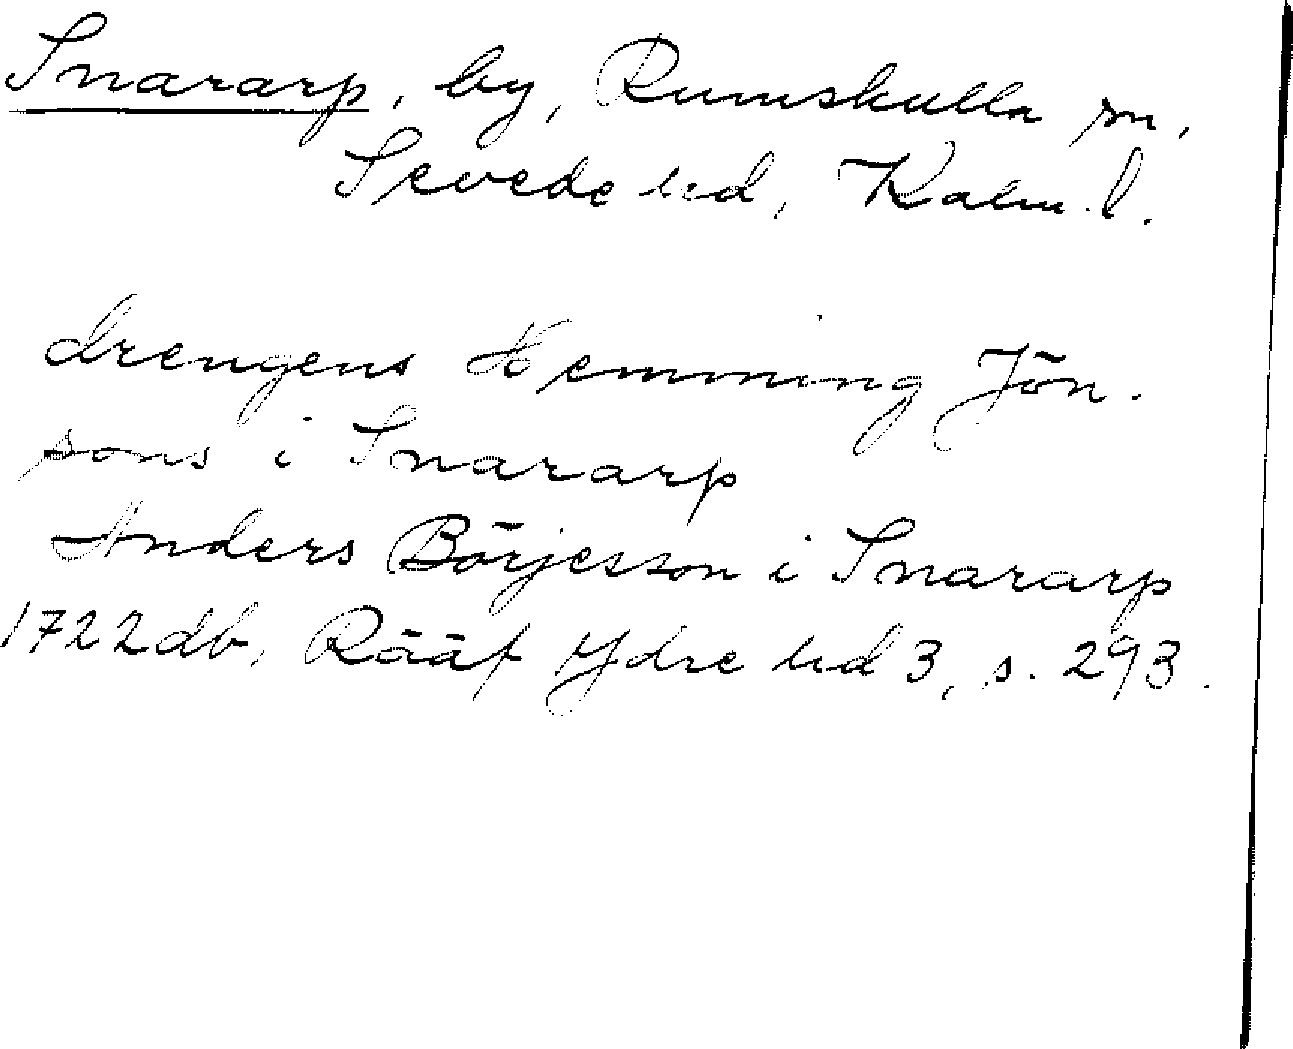 Snararp, by, Rumskulla sn,
Sevede hd, Kalm. l.
drengens Hemming Jön-
sons i Snararp
Anders Börjesson i Snararp
1722 db, Rääf Ydre hd 3, s. 293.